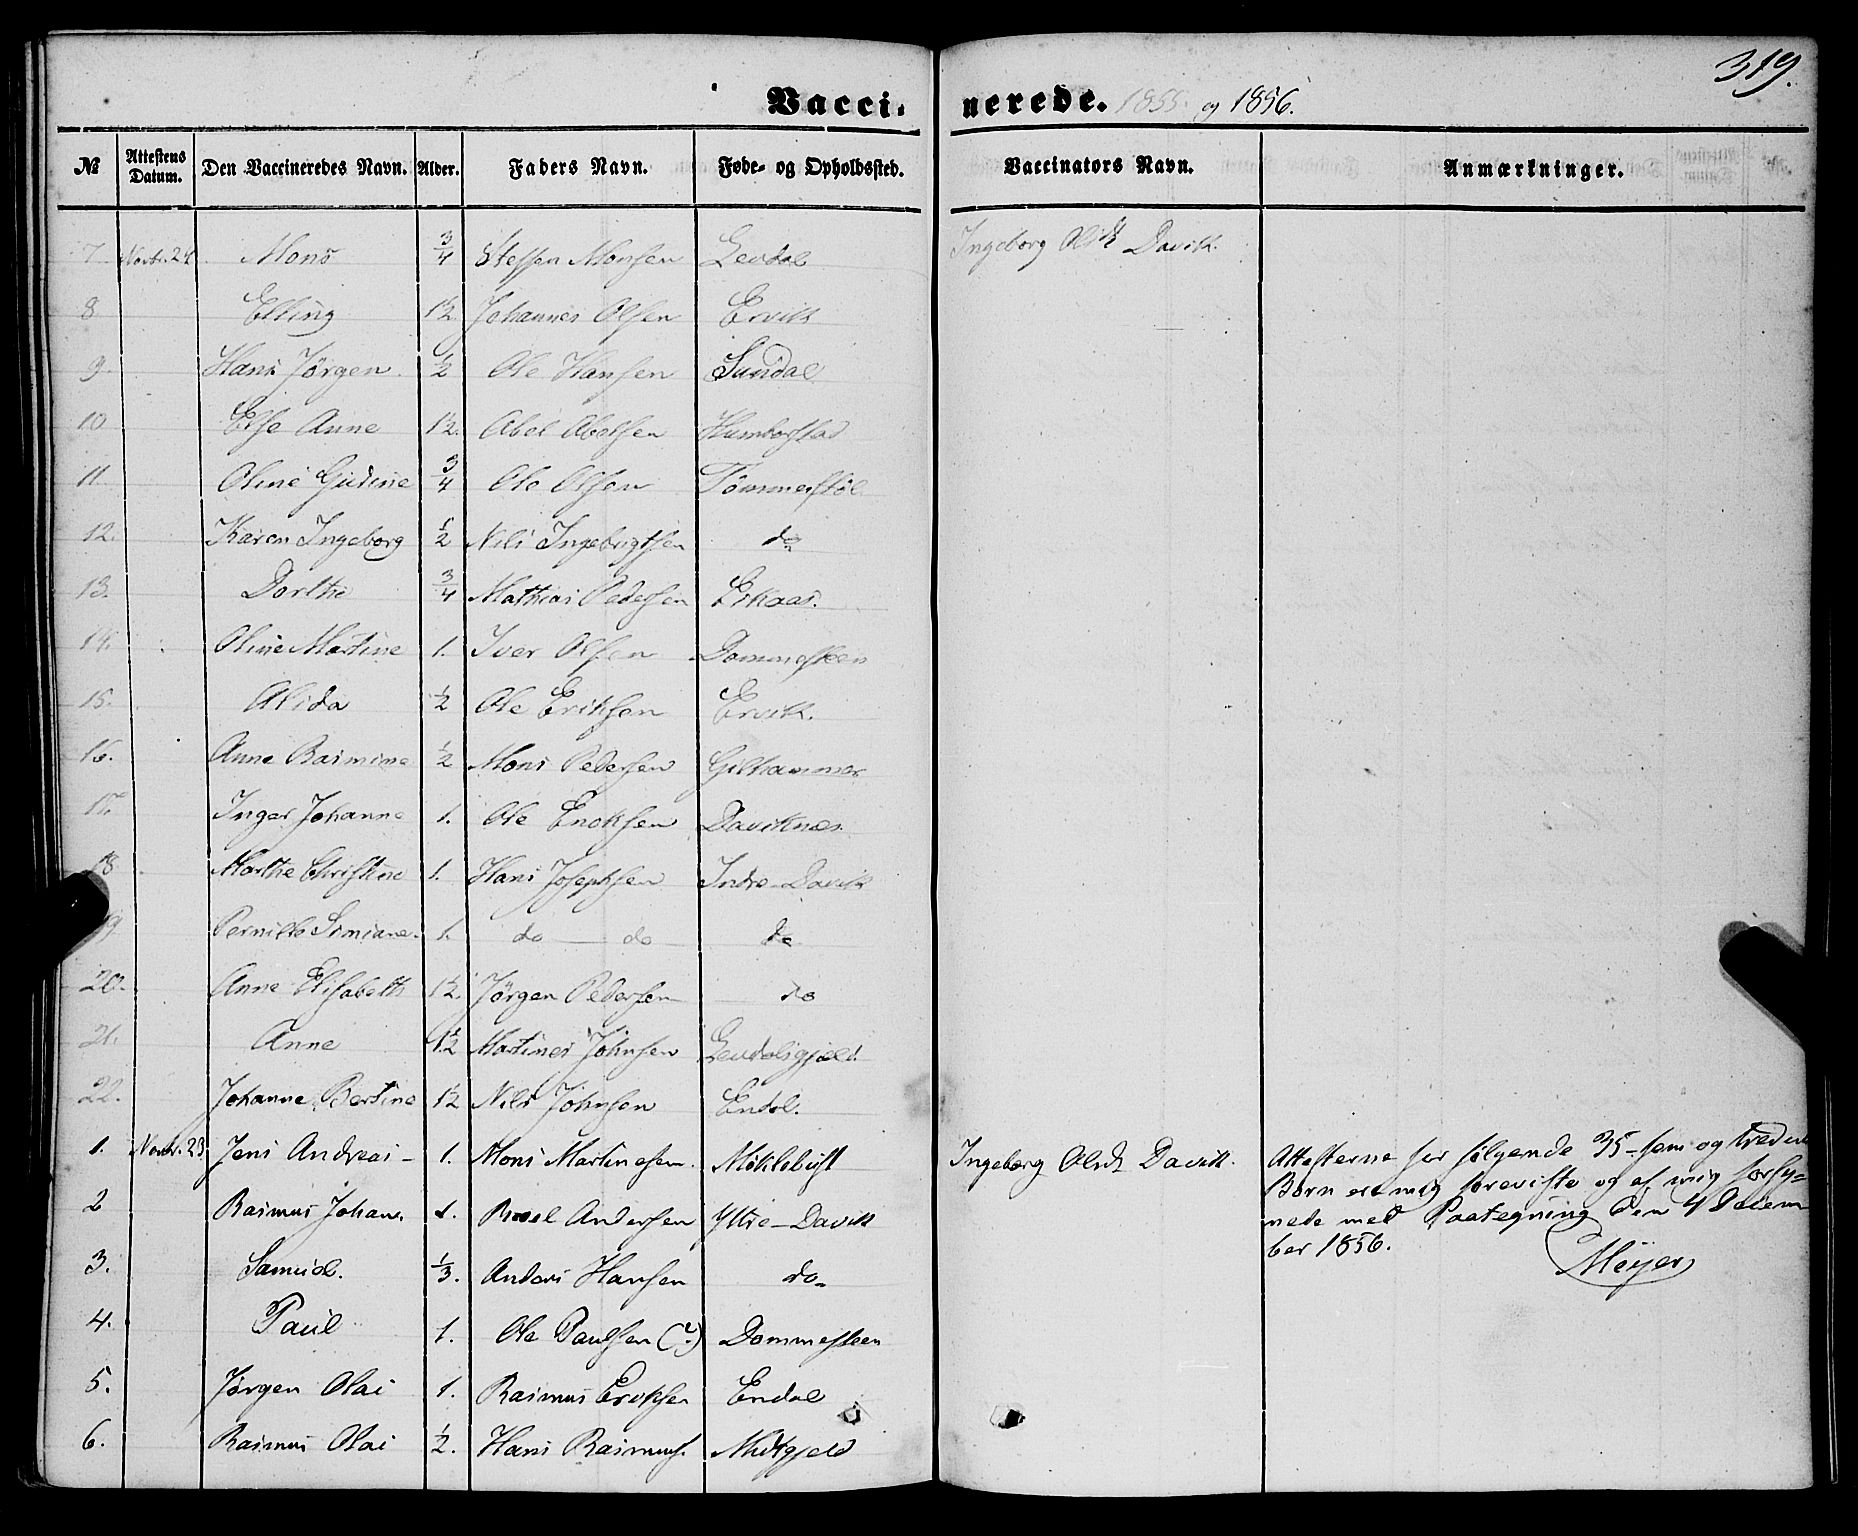 319.
Vaccinerede. 1855. og 1856.
№ Attestens Datum. Den Vaccineredes Navn. Alder. Faders Navn. Føde- og Opholdssted. Vaccinators Navn. Anmærkninger.
7. Novbr. 24. Mons 3/4 Steffen Monsen Levdal Ingeborg Olsdt Davik.
8 Elling 1½ Johannes Olsen Ervik
9. Hans Jörgen ½ Ole Hansen Sundal
10 Else Anne 1½. Abel Abelsen Humborstad
11. Oline Gudine 3/4 Ole Olsen Tömmerstöl
12. Karen Ingeborg ½ Nils Ingebrigtsen do
13. Dorthe 3/4 Mathias Pedersen Eikaas.
14. Oline Martine 1. Iver Olsen Dommesteen
15. Alida ½ Ole Eriksen Ervik.
16. Anne Rasmine ½ Mons Pedersen Gilhammer
17. Inger Johanne 1. Ole Enoksen Daviknæs.
18 Marthe Christine 1. Hans Josephsen Indre-Davik
19 Pernille Simiane. 1. do — do do
20. Anne Elisabeth 1½. Jörgen Pedersen do
21. Anne 1½ Martines Johnsen Levdalsgjeld.
22. Johanne Bertine 1½ Nils Johnsen Endal.
1. Novbr. 23. Jens Andreas - 1. Mons Martinesen. Möklebust Ingeborg Olsdt Davik. Attesterne for følgende 35 - fem og tredeve
2 Rasmus Johan. 1. Andersen Ytre-Davik Børn ere mig foreviste og af mig forsy=
nede med Paategning den 4 Decem
3. Samuel. ⅓. Anders Hansen do- ber 1856.
Meyer
4. Paul 1. Ole Paulsen (?) Dommesteen
5. Jørgen Olai 1. Rasmus Eroksen Endal
6. Rasmus Olai ½. Hans Rasmus. Midtgjeld